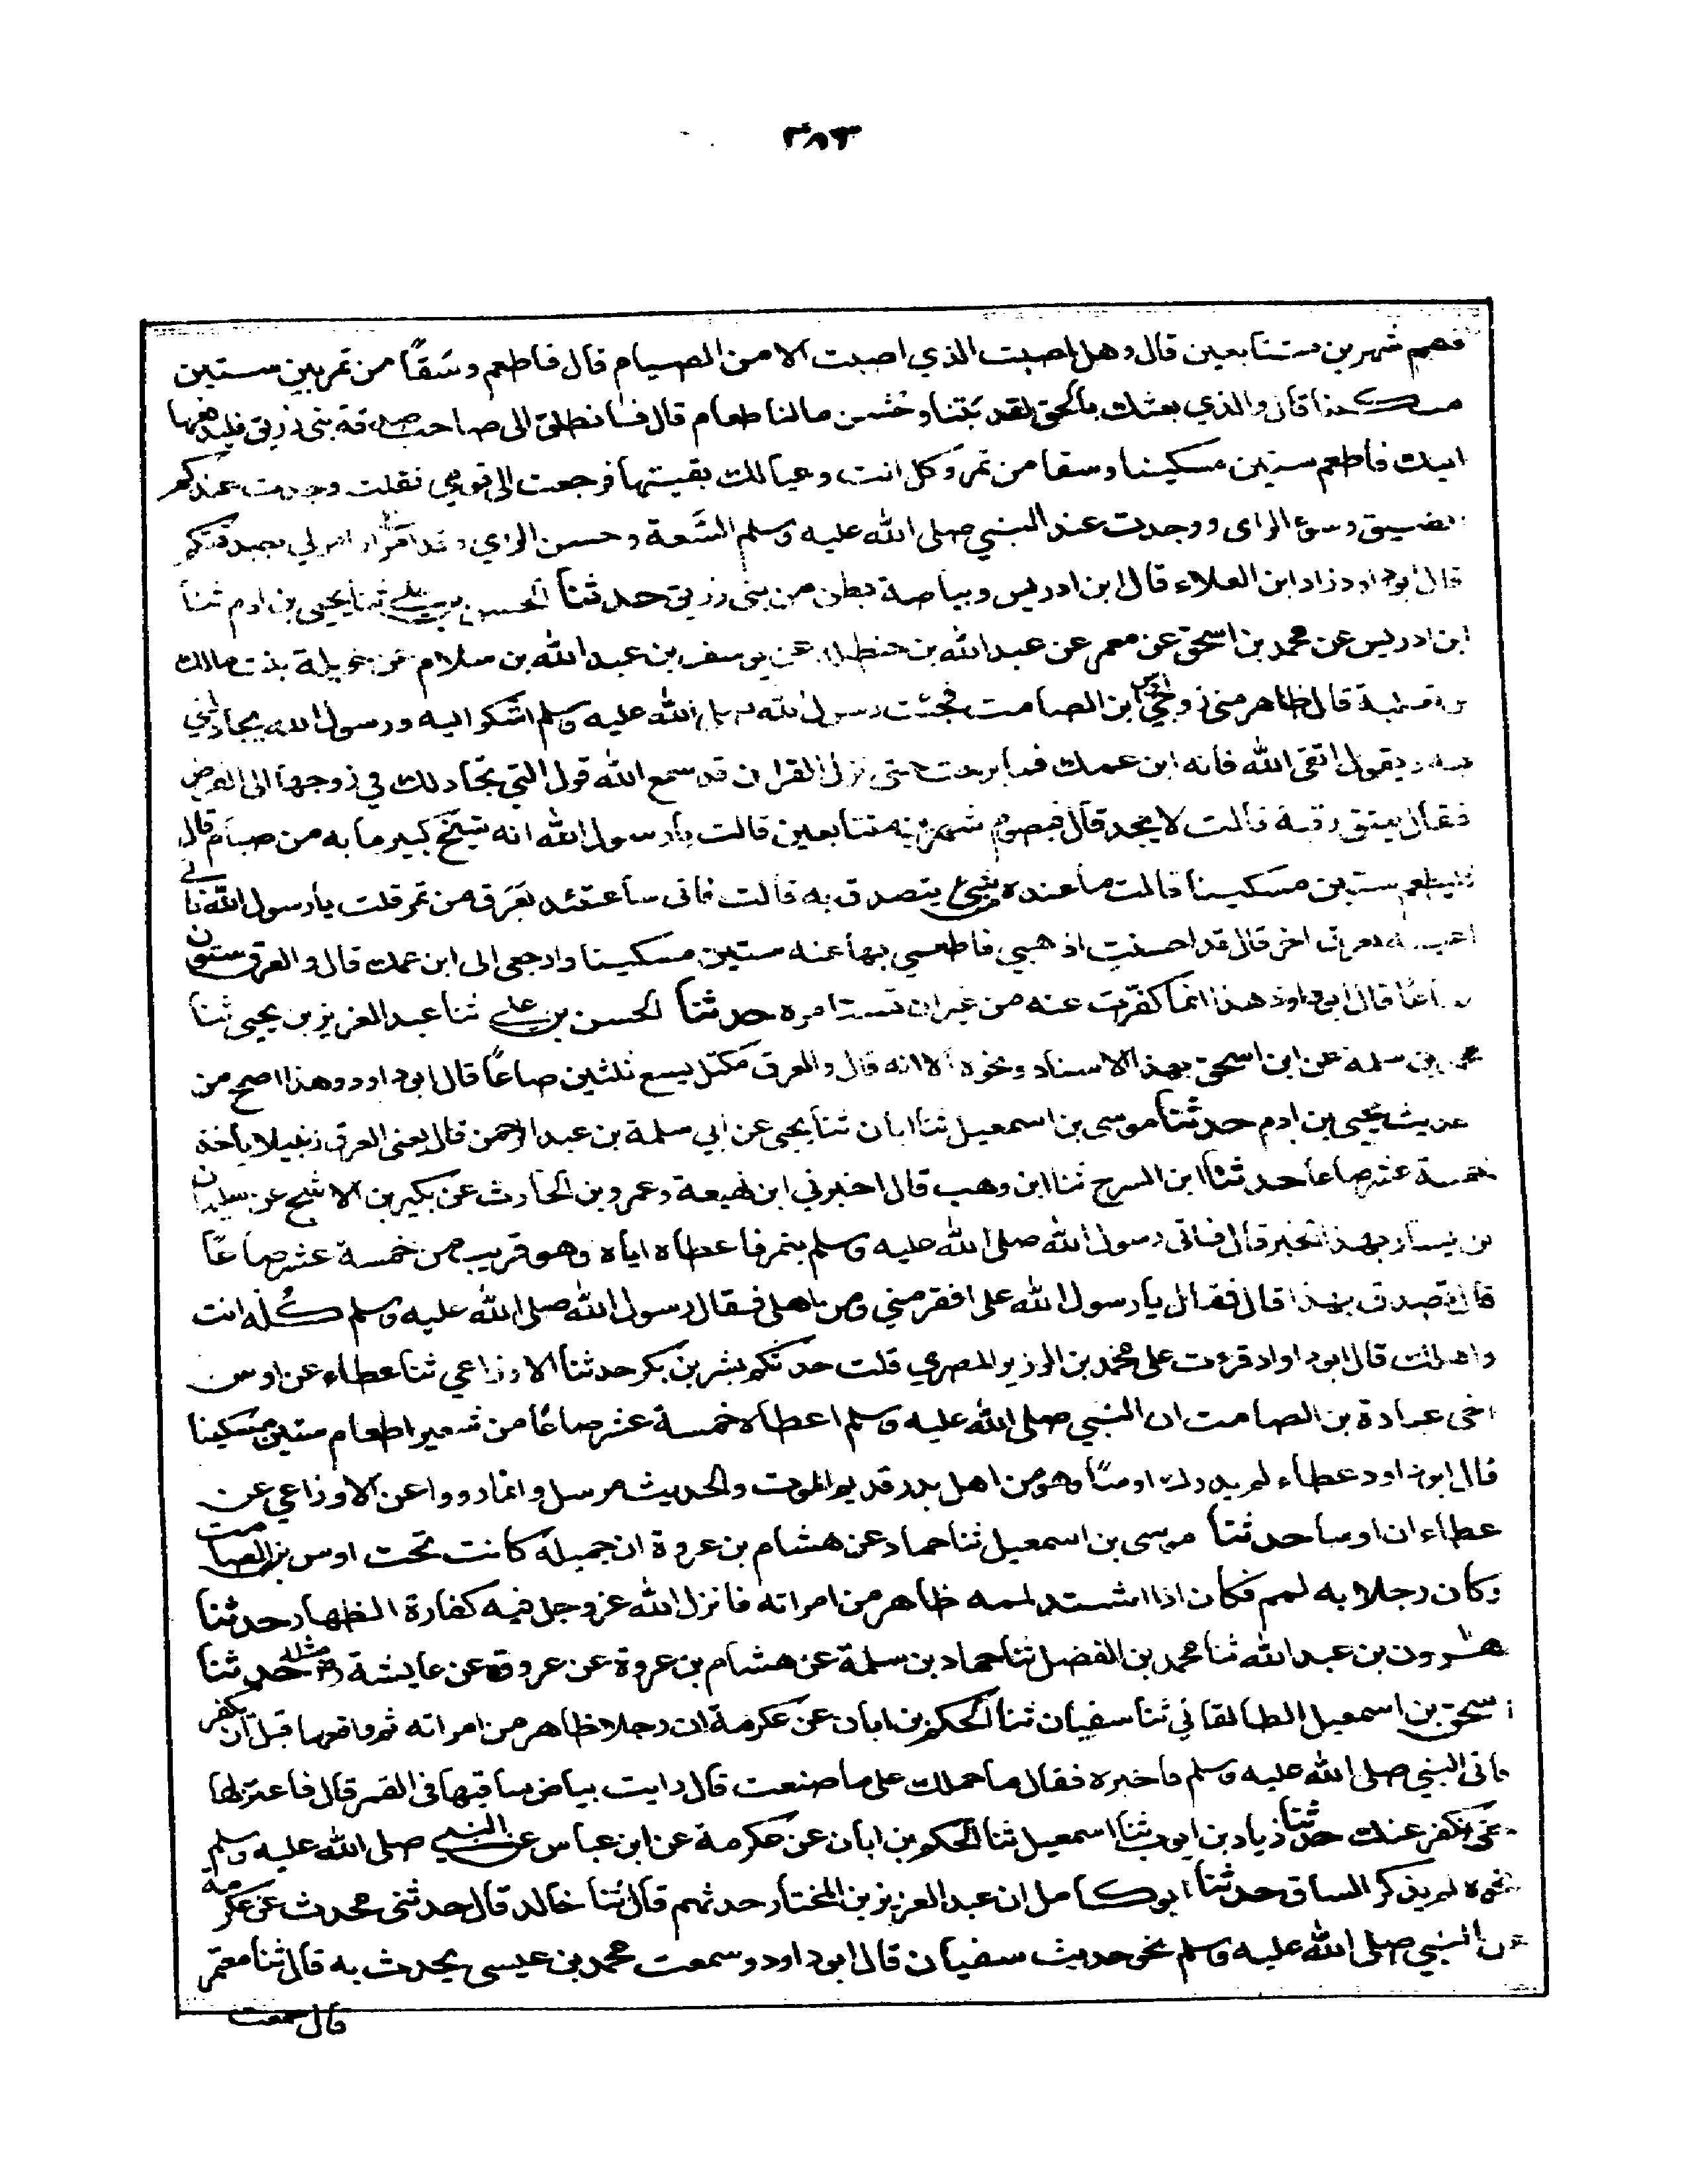 ٣٨٣
فصم شهرين متتابعين قال وهل اصبت الذي اصبت الا من الصيام قال فاطعم وسَقًا من تمر بين ستين
مسكينا قال والذي بعثك بالحق لقد بتنا وحشين مالنا طعام قال فانطلق الى صاحب صدقة بني زريق فليدفعها
اليك فاطعم ستين مسكينا وسقا من تمر وكل انت وعيالك بقيتها فرجعت الى قومي فقلت وجدت عندكم
الضيق وسوء الراى ووجدت عند النبي صلى الله عليه وسلم السَّعة وحسن الراي وقد امر لي بصدقتكم
قال ابو داود زاد ابن العلاء قال ابن ادريس وبياضة بطن من بني زريق حدثنا الحسن بن علي ثنا يحيى بن ادم ثنا
ابن ادريس عن محمد بن اسحق عن معمر عن عبد الله بن حنظلة عن يوسف بن عبد الله بن سلام عن خويلة بنت مالك
بن ثعلبة قال ظاهر مني زوجي اوس ابن الصامت فجئت رسول الله صلى الله عليه وسلم اشكو اليه ورسول الله يجادلني
فيه ويقول اتقى الله فانه ابن عمك فما برحت حتى نزل القران قد سمع الله قول التي تجادلك في زوجها الى الفرض
فقال يعتق رقبة قالت لا يجد قال فيصوم شهرين متتابعين قالت يا رسول الله انه شيخ كبير ما به من صيام قال
فليطعم ستين مسكينا قالت ما عنده من شيئ يتصدق به قالت فاتى ساعتئذ بعَرَق من تمر قلت يا رسول الله فاني
اعينه بعرق اخر قال قد احسنت اذهبي فاطعمي بها عنه ستين مسكينا وارجعي الى ابن عمك قال والعرق ستون
صاعًا قال ابو داود هذا انما كفّرت عنه من غير ان تستامره حدثنا الحسن بن علي ثنا عبد العزيز بن يحيى ثنا
محمد بن سلمة عن ابن اسحق بهذا الاسناد ونحوه الا انه قال والعرق مكتل يسع ثلثين صاعًا قال ابو داود وهذا اصح من
حديث يحيى بن ادم حدثنا موسى بن اسمعيل ثنا ابان ثنا يحيى عن ابي سلمة بن عبد الرحمن قال يعنى العرق زنبيلا ياخذ
خمسة عشر صاعا حدثنا ابن السرح ثنا ابن وهب قال اخبرني ابن لهيعة وعمرو بن الحارث عن بكير بن الاشج عن سليمان
بن يسار بهذا الخبر قال فاتى رسول الله صلى الله عليه وسلم بتمر فاعطاه اياه وهو قريب من خمسة عشر صاعًا
قال تصدق بهذا قال فقال يا رسول الله على افقر مني ومن اهلي فقال رسول الله صلى الله عليه وسلم كُله انت
واهلك قال ابو داود قرءت على محمد بن الوزير المصري قلت حدثكم بشر بن بكر حدثنا الاوزاعي ثنا عطاء عن اوس
اخى عبادة بن الصامت ان النبي صلى الله عليه وسلم اعطاه خمسة عشر صاعًا من شعير اطعام ستين مسكينا
قال ابو داود عطاء لم يدرك اوسًا وهو من اهل بدر قديم الموت والحديث مرسل وانما رووا عن الاوزاعي عن
عطاء ان اوسا حدثنا موسى بن اسمعيل ثنا حماد عن هشام بن عروة ان جميلة كانت تحت اوس بن الصامت
وكان رجلا به لمم فكان اذا اشتد لممه ظاهر من امراته فانزل الله عز وجل فيه كفارة الظهار حدثنا
هارون بن عبد الله ثنا محمد بن الفضل ثنا حماد بن سلمة عن هشام بن عروة عن عروة عن عايشة مثله حدثنا
اسحق بن اسمعيل الطالقاني ثنا سفيان ثنا الحكم بن ابان عن عكرمة ان رجلا ظاهر من امراته ثم واقعها قبل ان يكفر
فاتى النبي صلى الله عليه وسلم فاخبره فقال ما حملك على ما صنعت قال رايت بياض ساقيها في القمر قال فاعتزلها
حتى تكفر عنك حدثنا زياد بن ايوب ثنا اسمعيل ثنا الحكم بن ابان عن عكرمة عن ابن عباس عن النبي صلى الله عليه وسلم
نحوه لم يذكر الساق حدثنا ابو كامل ان عبد العزيز بن المختار حدثهم قال ثنا خالد قال حدثنى محدث عن عكرمة
عن النبي صلى الله عليه وسلم نحو حديث سفيان قال ابو داود وسمعت محمد بن عيسى يحدث به قال ثنا معتمر
قال سمعت